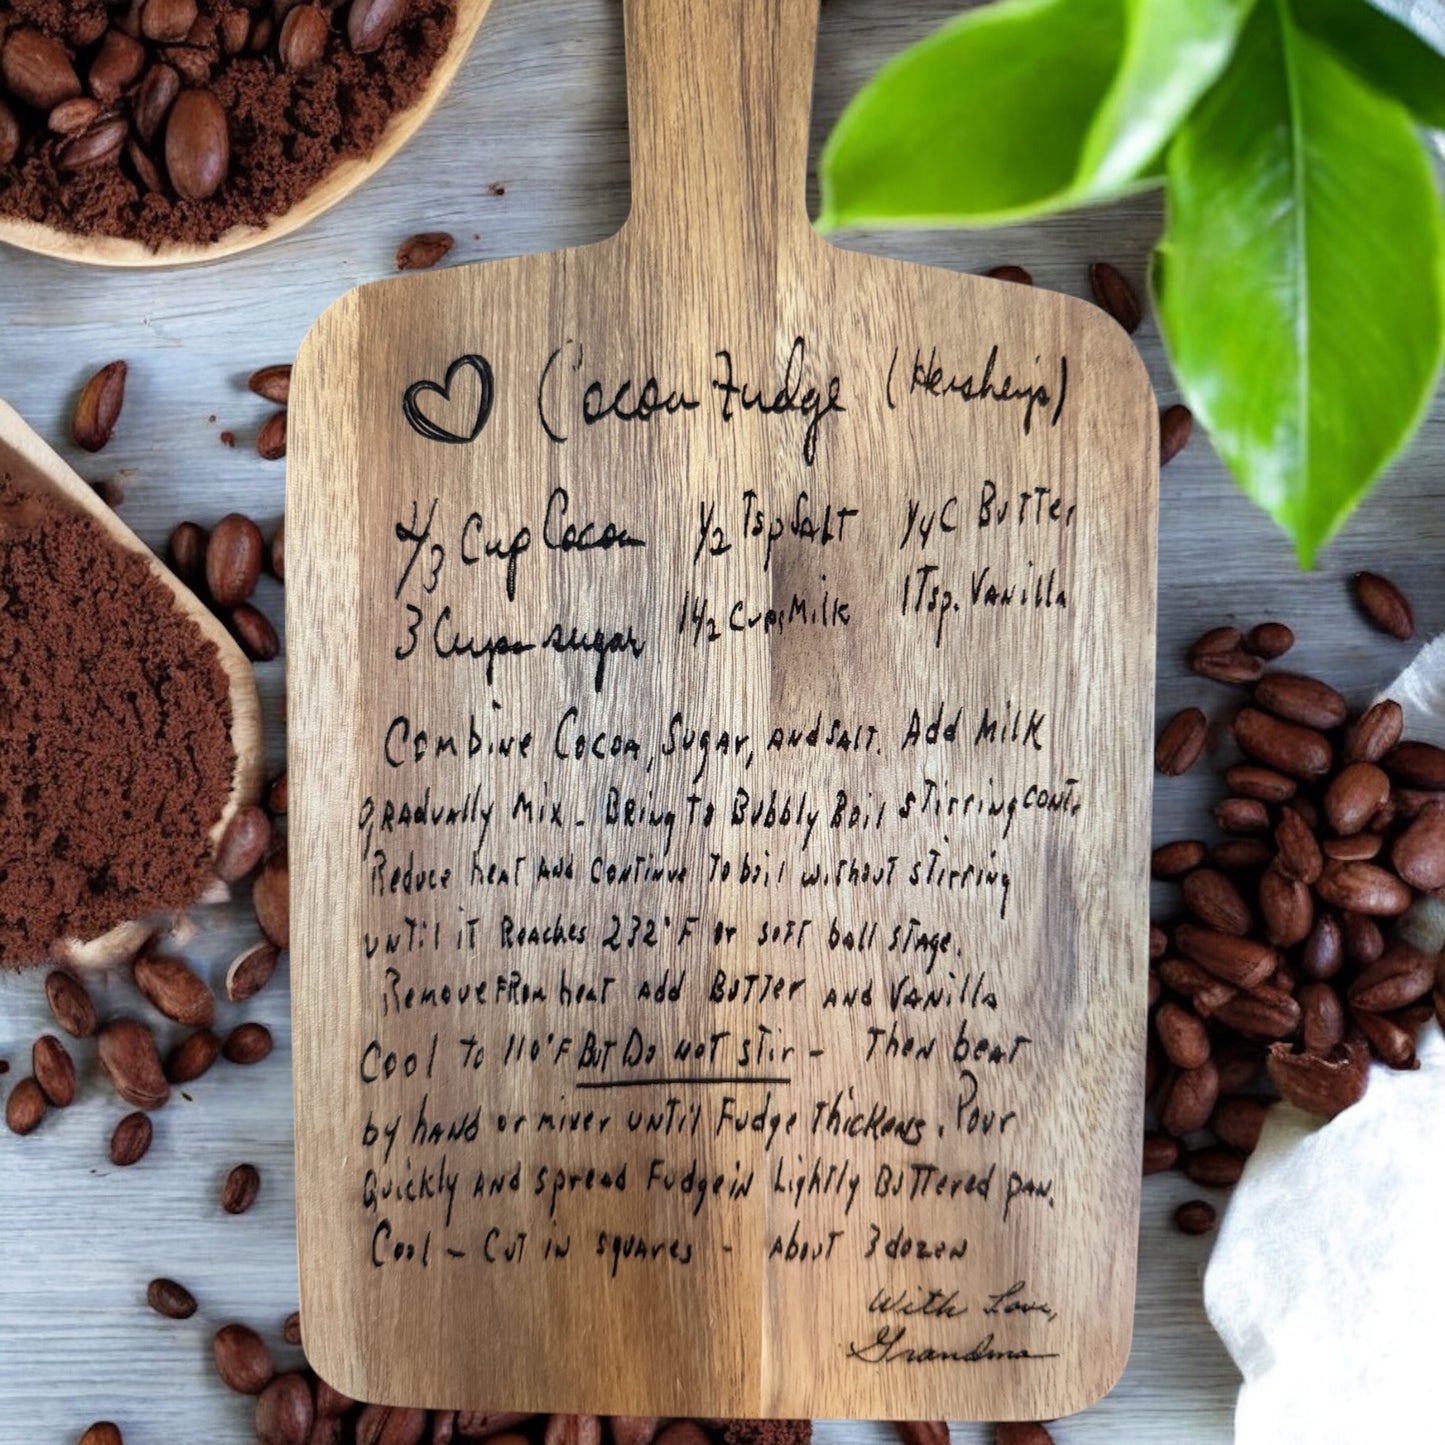 Cocoa Fudge (Hershey's)
4/3 Cup Cocoa 1/2 Tsp Salt 1/4 C Butter
3 Cups sugar 1 1/2 Cups Milk 1 Tsp. Vanilla
Combine Cocoa, Sugar, and salt. Add Milk
gradually Mix - Bring to Bubbly Boil stirring cont.
Reduce heat and continue to boil without stirring
until it Reaches 232°F or soft ball stage.
Remove from heat add Butter and Vanilla
Cool to 110°F But Do not stir - Then beat
by hand or mixer until Fudge thickens. Pour
Quickly and spread Fudge in Lightly Buttered pan.
Cool - Cut in squares - about 3 dozen
With Love,
Grandma